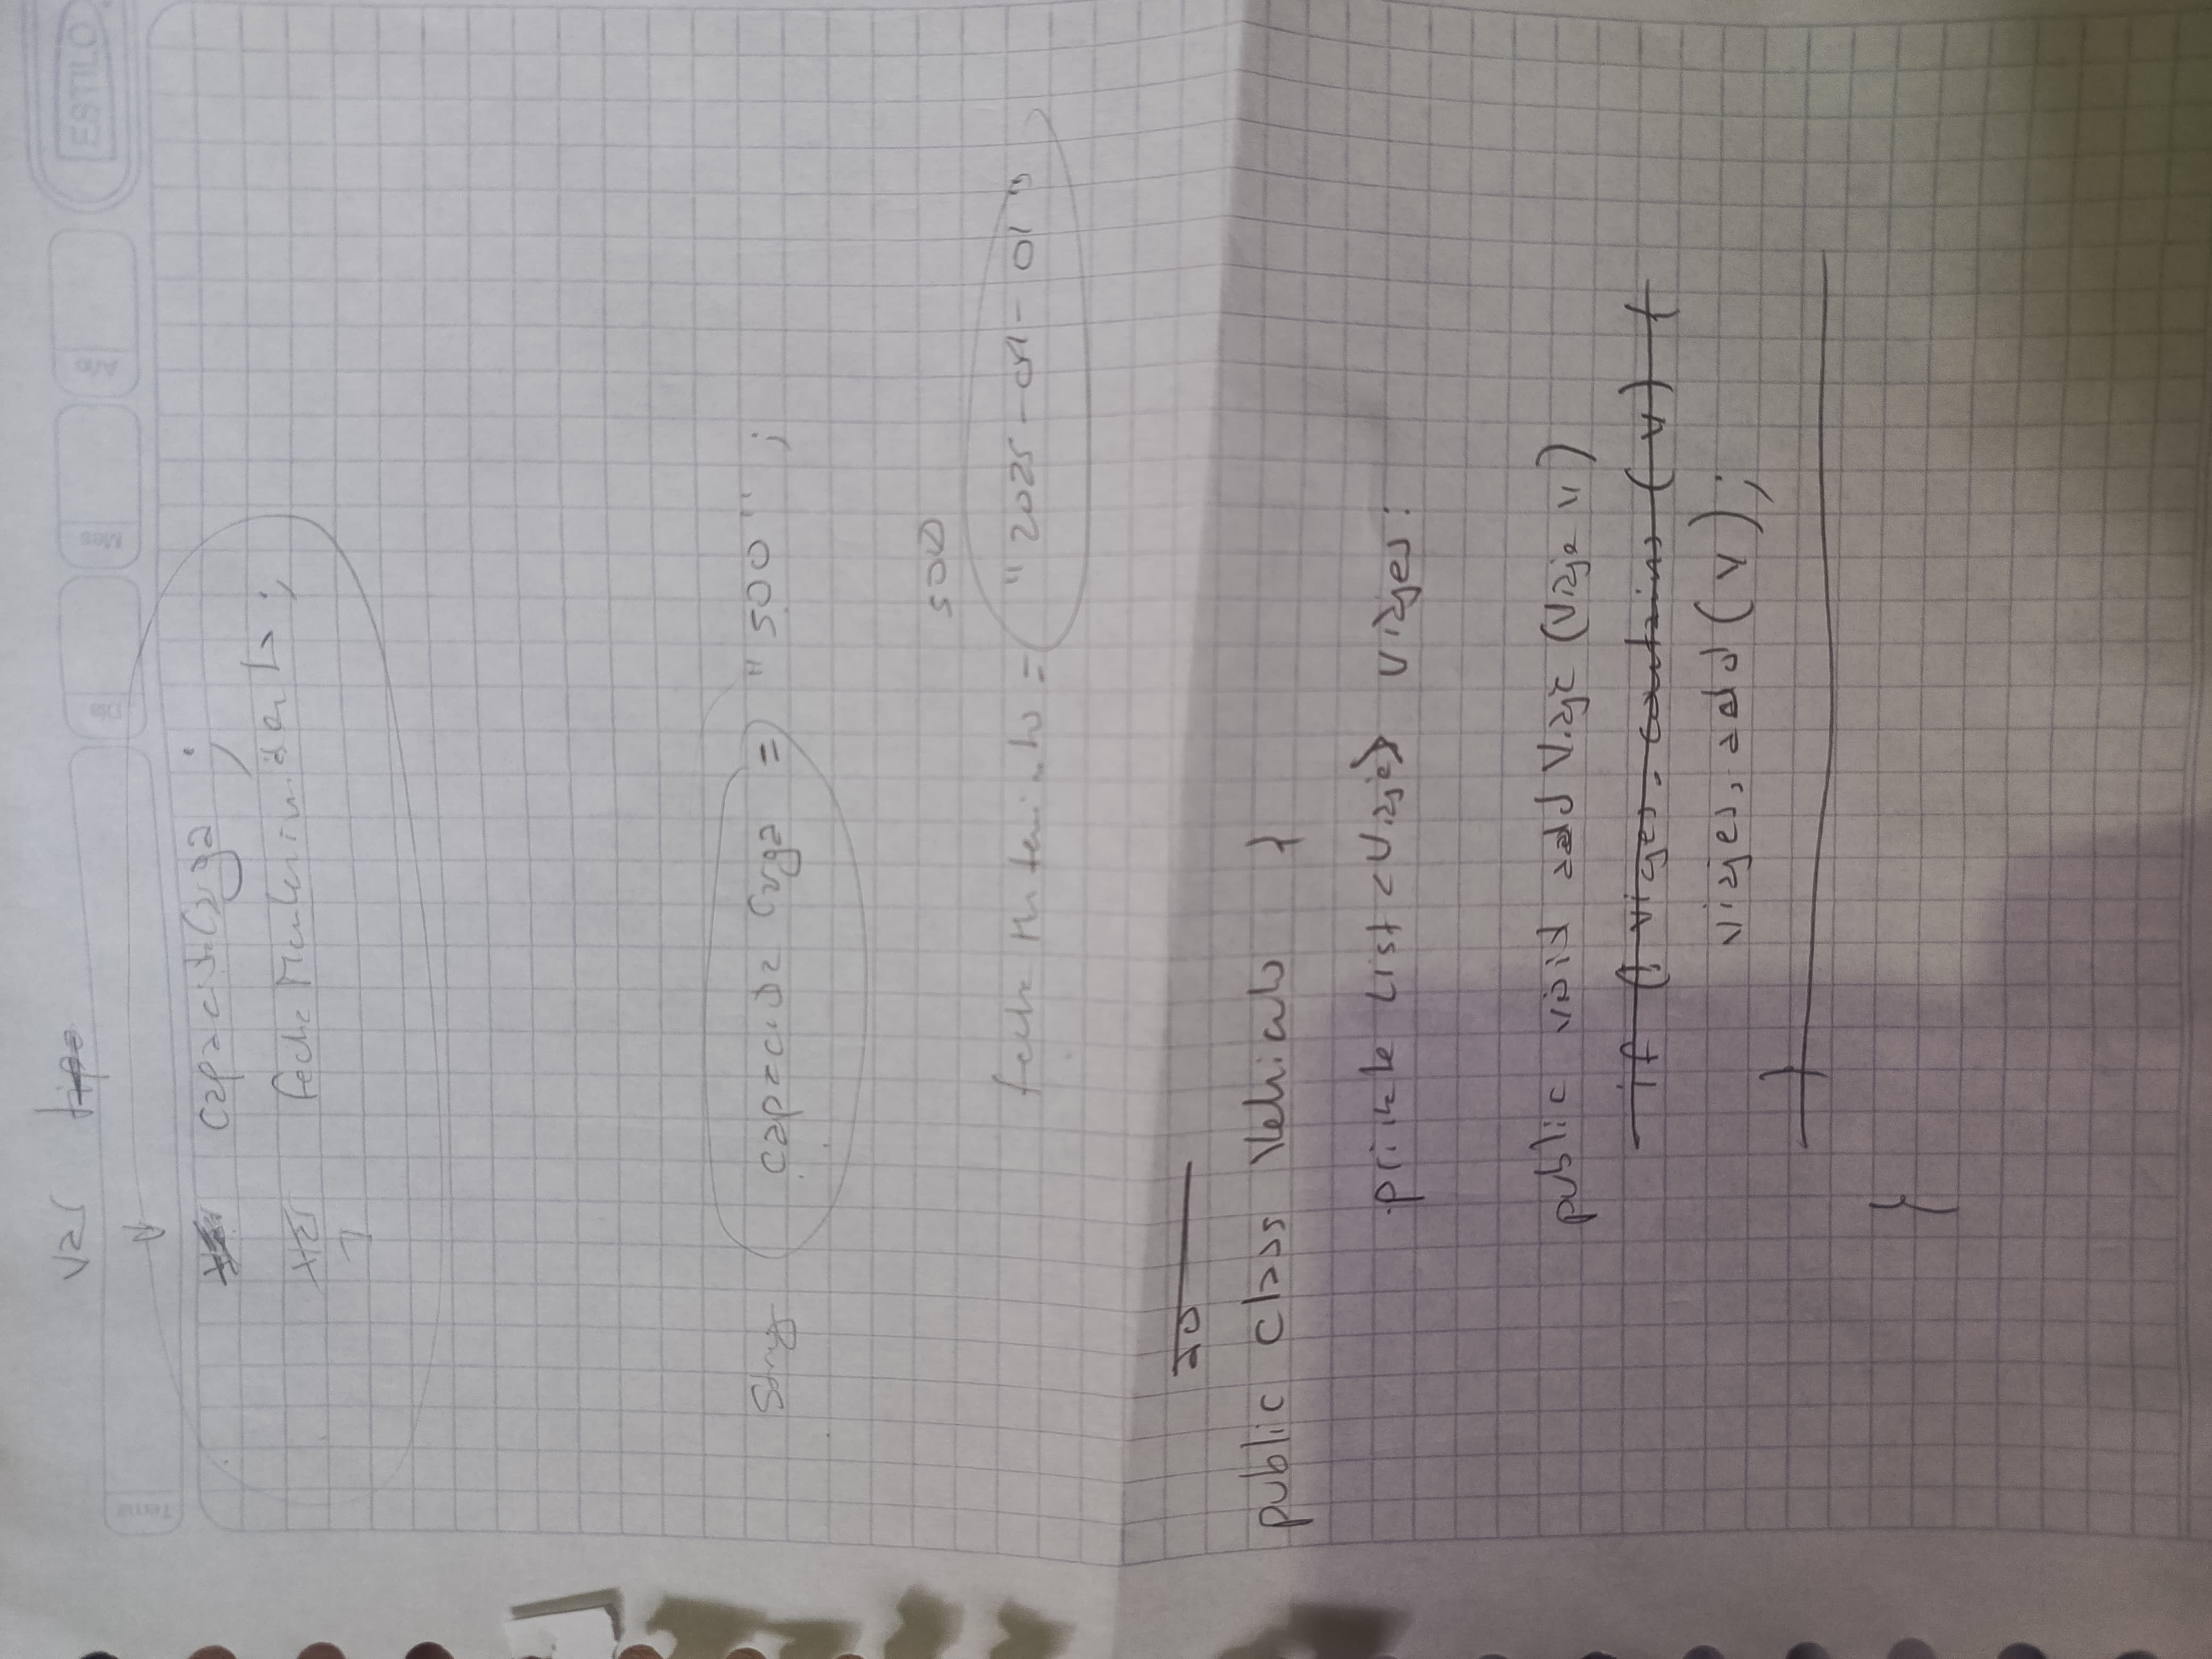 ESTILO
Tema
Día
Mes
Año
var tipo
capacidaCarga ;
fecha Mantenimiento ;
String capacida Carga = "500" ;
500
fecha Mantenimiento = "2025-04-01"
20
public class Vehiculo {
private List<Viaje> viajes;
public void add Viaje (Viaje v)
if ( viajes. contains (v) {
viajes. add (v) ;
}
}